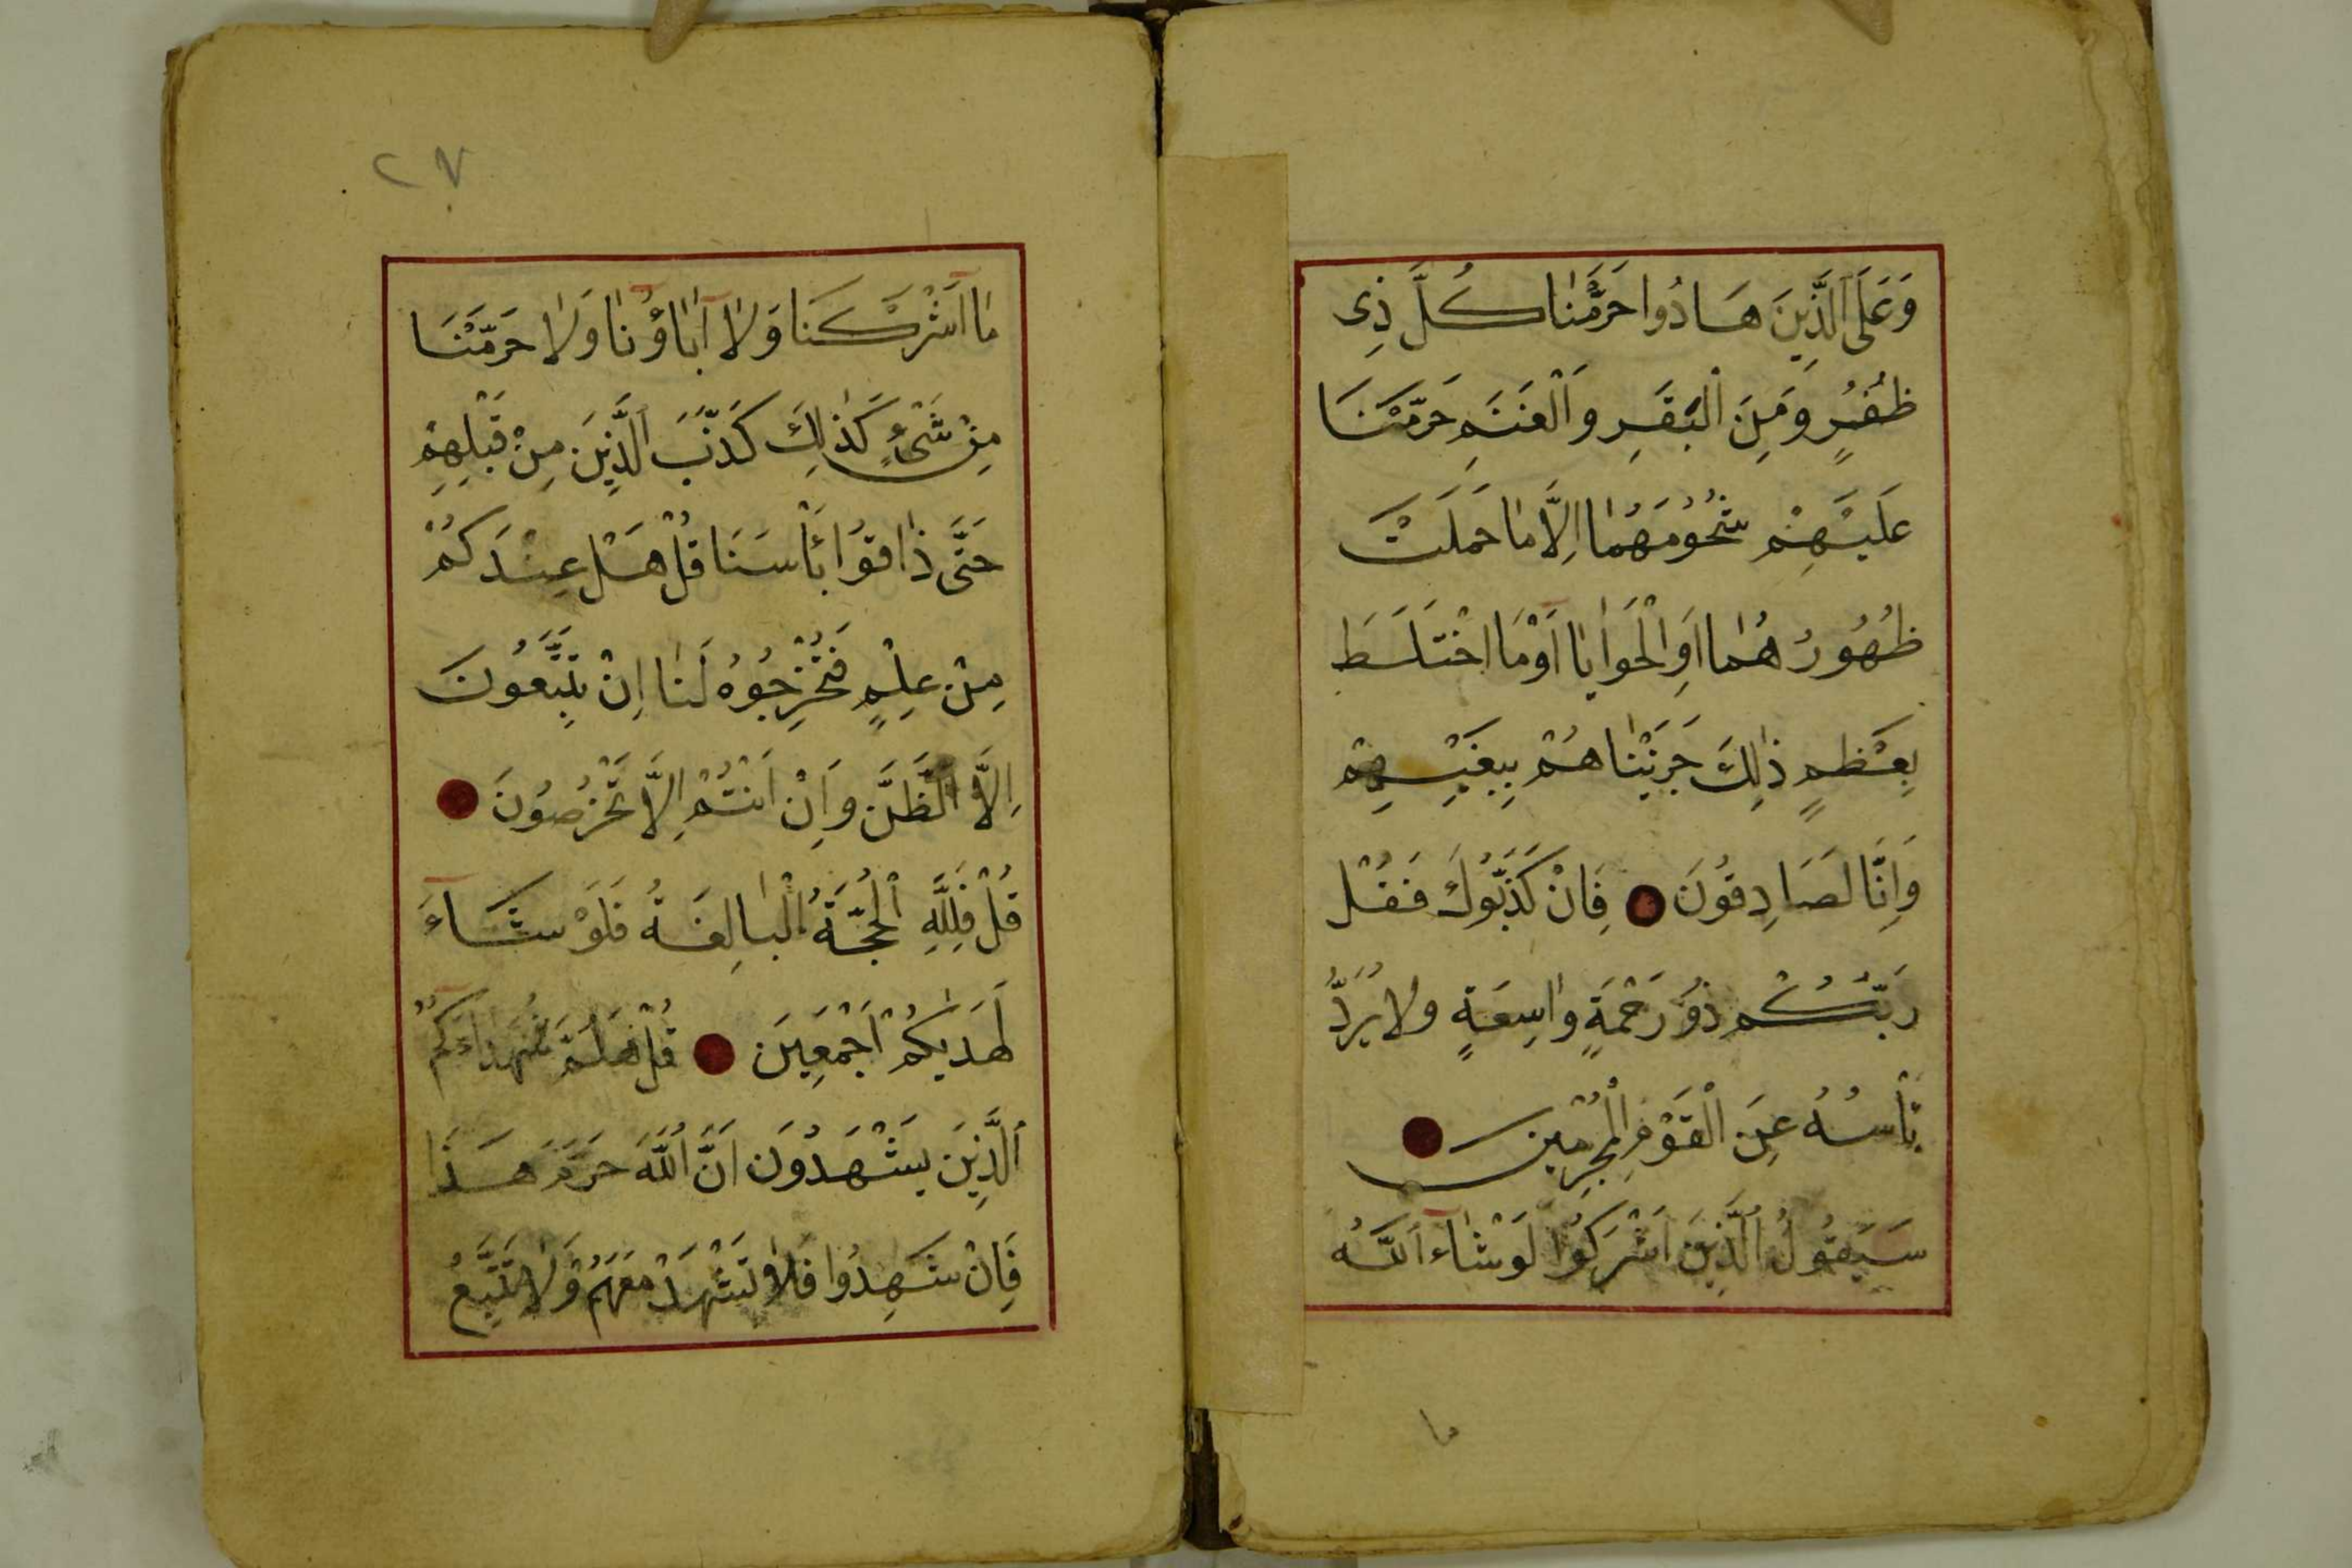 وَعَلَى الَّذِينَ هَادُوا حَرَّمْنَا كُلَّ ذِى
ظُفُرٍ وَمِنَ الْبَقَرِ وَالْغَنَمِ حَرَّمْنَا
عَلَيْهِمْ شُحُومَهُمَا اِلَّا مَا حَمَلَتْ
ظُهُورُهُمَا اَوِ الْحَوَايَا اَوْ مَا اخْتَلَطَ
بِعَظْمٍ ذٰلِكَ جَزَيْنَاهُمْ بِبَغْيِهِمْ
وَاِنَّا لَصَادِقُونَ فَاِنْ كَذَّبُوكَ فَقُلْ
رَبُّكُمْ ذُو رَحْمَةٍ وَاسِعَةٍ وَلَا يُرَدُّ
بَأْسُهُ عَنِ الْقَوْمِ الْمُجْرِمِينَ
سَيَقُولُ الَّذِينَ اَشْرَكُوا لَوْ شَاءَ اللَّهُ
ما
٢٧
مَا اَشْرَكْنَا وَلَا آبَاؤُنَا وَلَا حَرَّمْنَا
مِنْ شَىْءٍ كَذٰلِكَ كَذَّبَ الَّذِينَ مِنْ قَبْلِهِمْ
حَتَّى ذَاقُوا بَأْسَنَا قُلْ هَلْ عِنْدَكُمْ
مِنْ عِلْمٍ فَتُخْرِجُوهُ لَنَا اِنْ تَتَّبِعُونَ
اِلَّا الظَّنَّ وَاِنْ اَنْتُمْ اِلَّا تَخْرُصُونَ
قُلْ فَلِلَّهِ الْحُجَّةُ الْبَالِغَةُ فَلَوْ شَاءَ
لَهَدٰيكُمْ اَجْمَعِينَ قُلْ هَلُمَّ شُهَدَاءَكُمُ
الَّذِينَ يَشْهَدُونَ اَنَّ اللَّهَ حَرَّمَ هَذَا
فَاِنْ شَهِدُوا فَلَا تَشْهَدْ مَعَهُمْ وَلَا تَتَّبِعْ